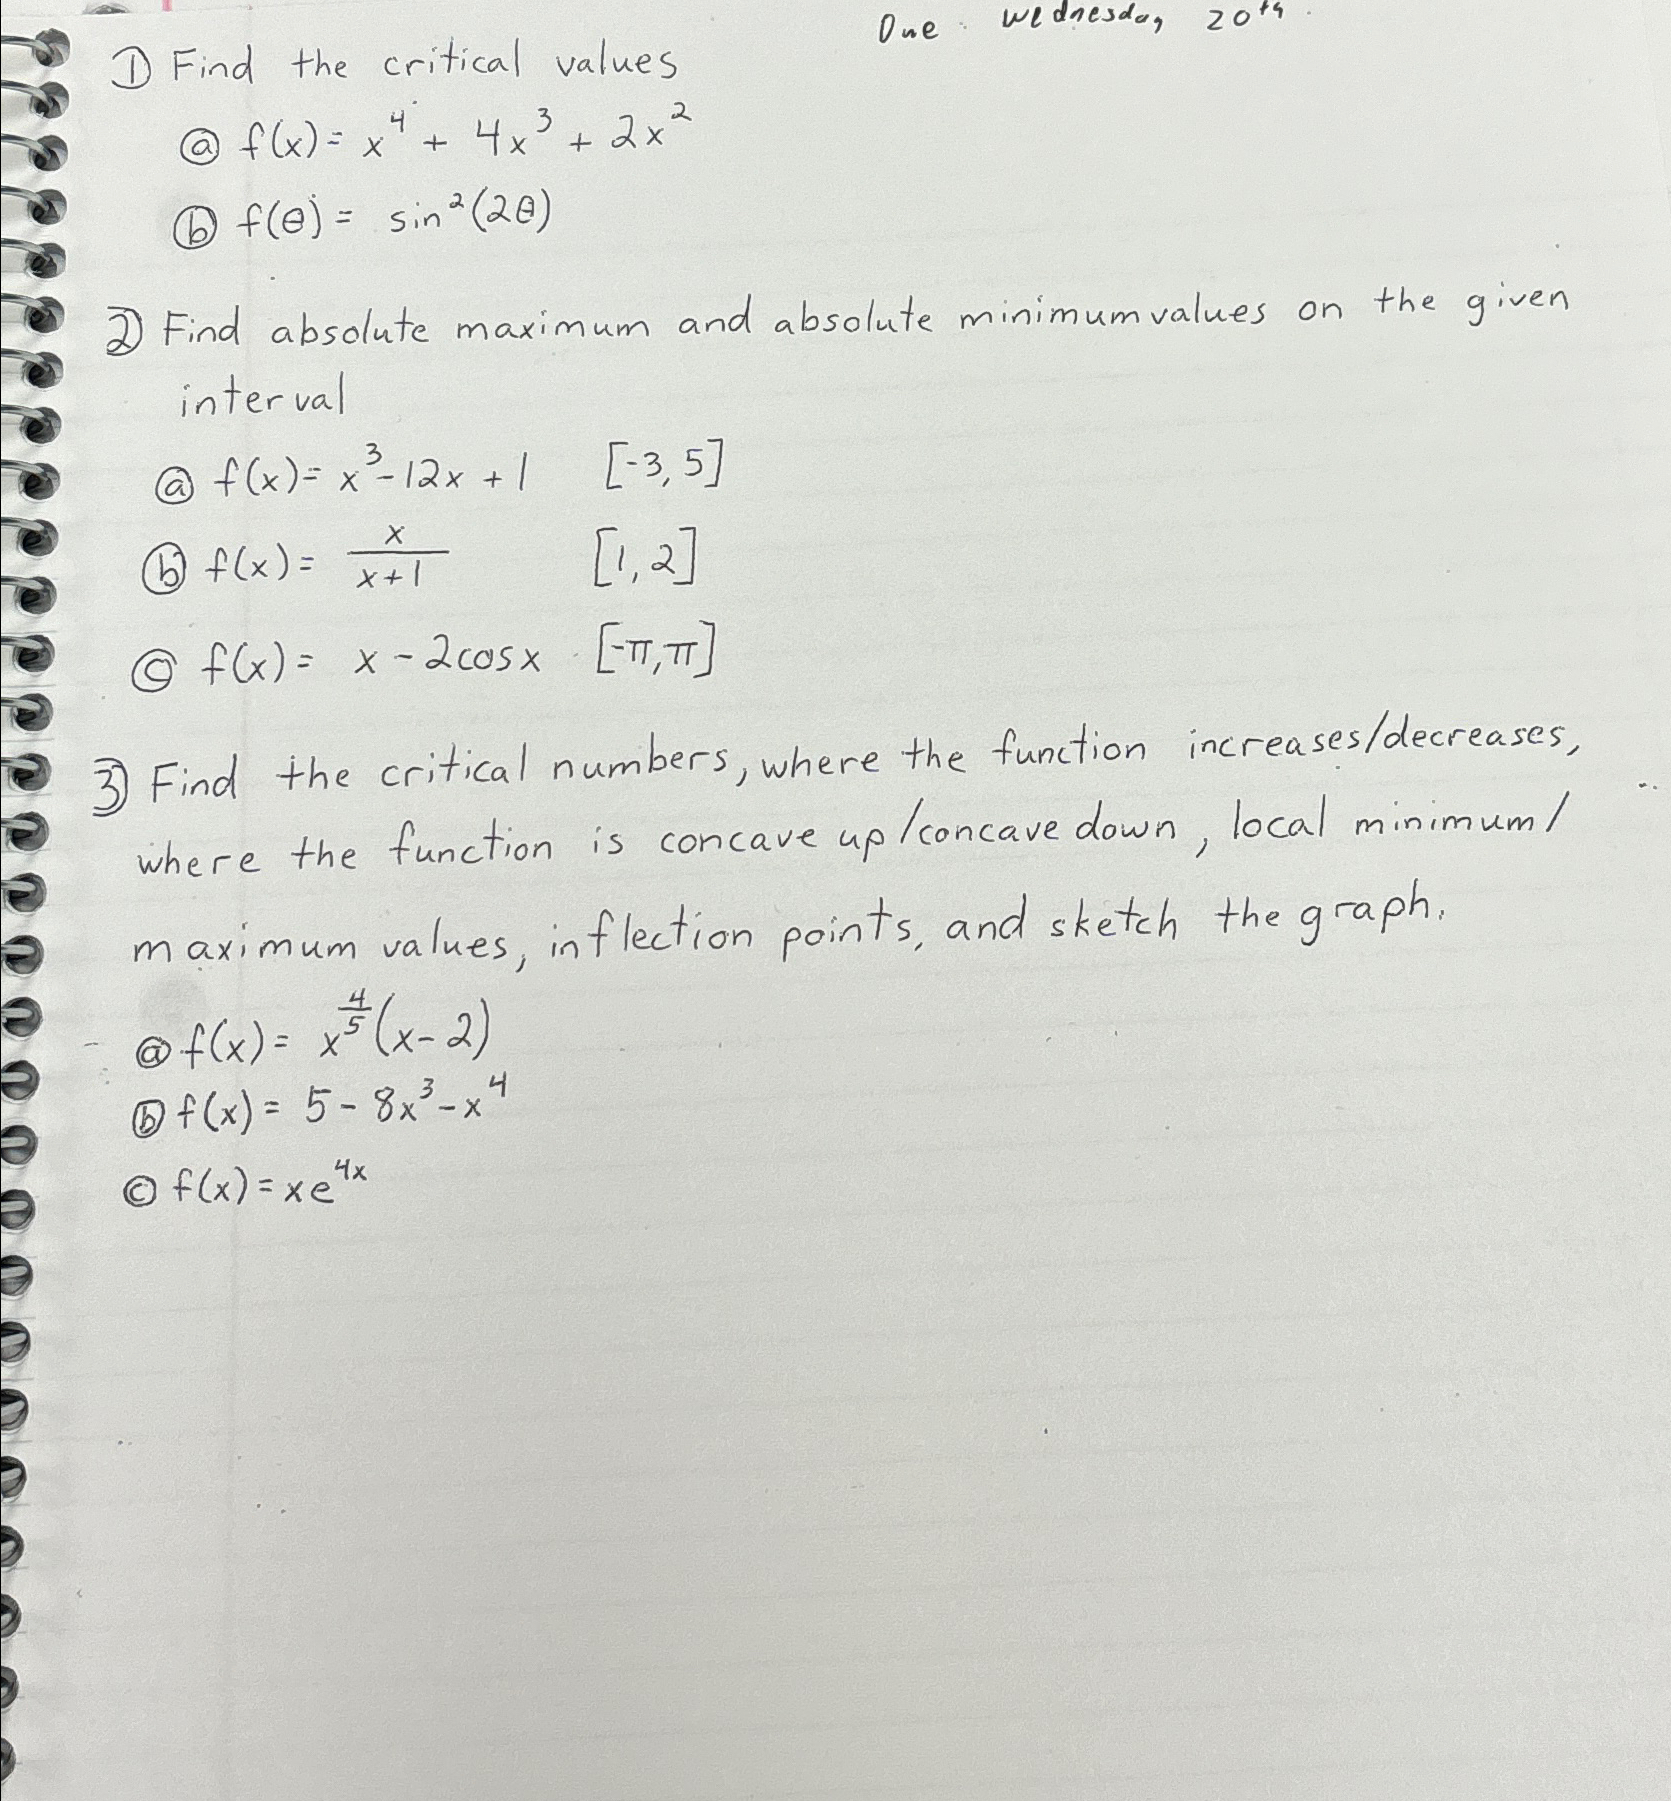 Due: Wednesday 20th.
① Find the critical values
ⓐ f(x) = x⁴ + 4x³ + 2x²
ⓑ f(θ) = sin²(2θ)
② Find absolute maximum and absolute minimum values on the given
interval
ⓐ f(x) = x³ - 12x + 1 [-3, 5]
ⓑ f(x) = x/(x+1) [1, 2]
ⓒ f(x) = x - 2cosx [-π, π]
③ Find the critical numbers, where the function increases/decreases,
where the function is concave up/concave down, local minimum/
maximum values, inflection points, and sketch the graph.
ⓐ f(x) = x^(4/5) (x-2)
ⓑ f(x) = 5 - 8x³ - x⁴
ⓒ f(x) = xe^(4x)